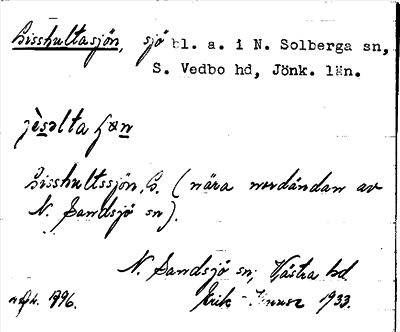 Lisshultasjön, sjö bl. a. i N. Solberga sn,
S. Vedbo hd, Jönk. län.
Lisshultssjön, (nära nordändan av
N. Sandsjö sn).
N. Sandsjö sn, Västra hd
896. Erik 1933.